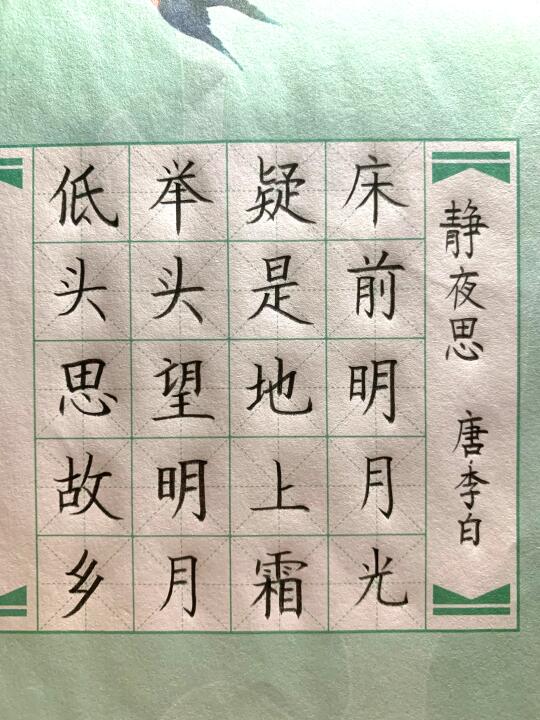 静夜思 唐·李白
床前明月光
疑是地上霜
举头望明月
低头思故乡